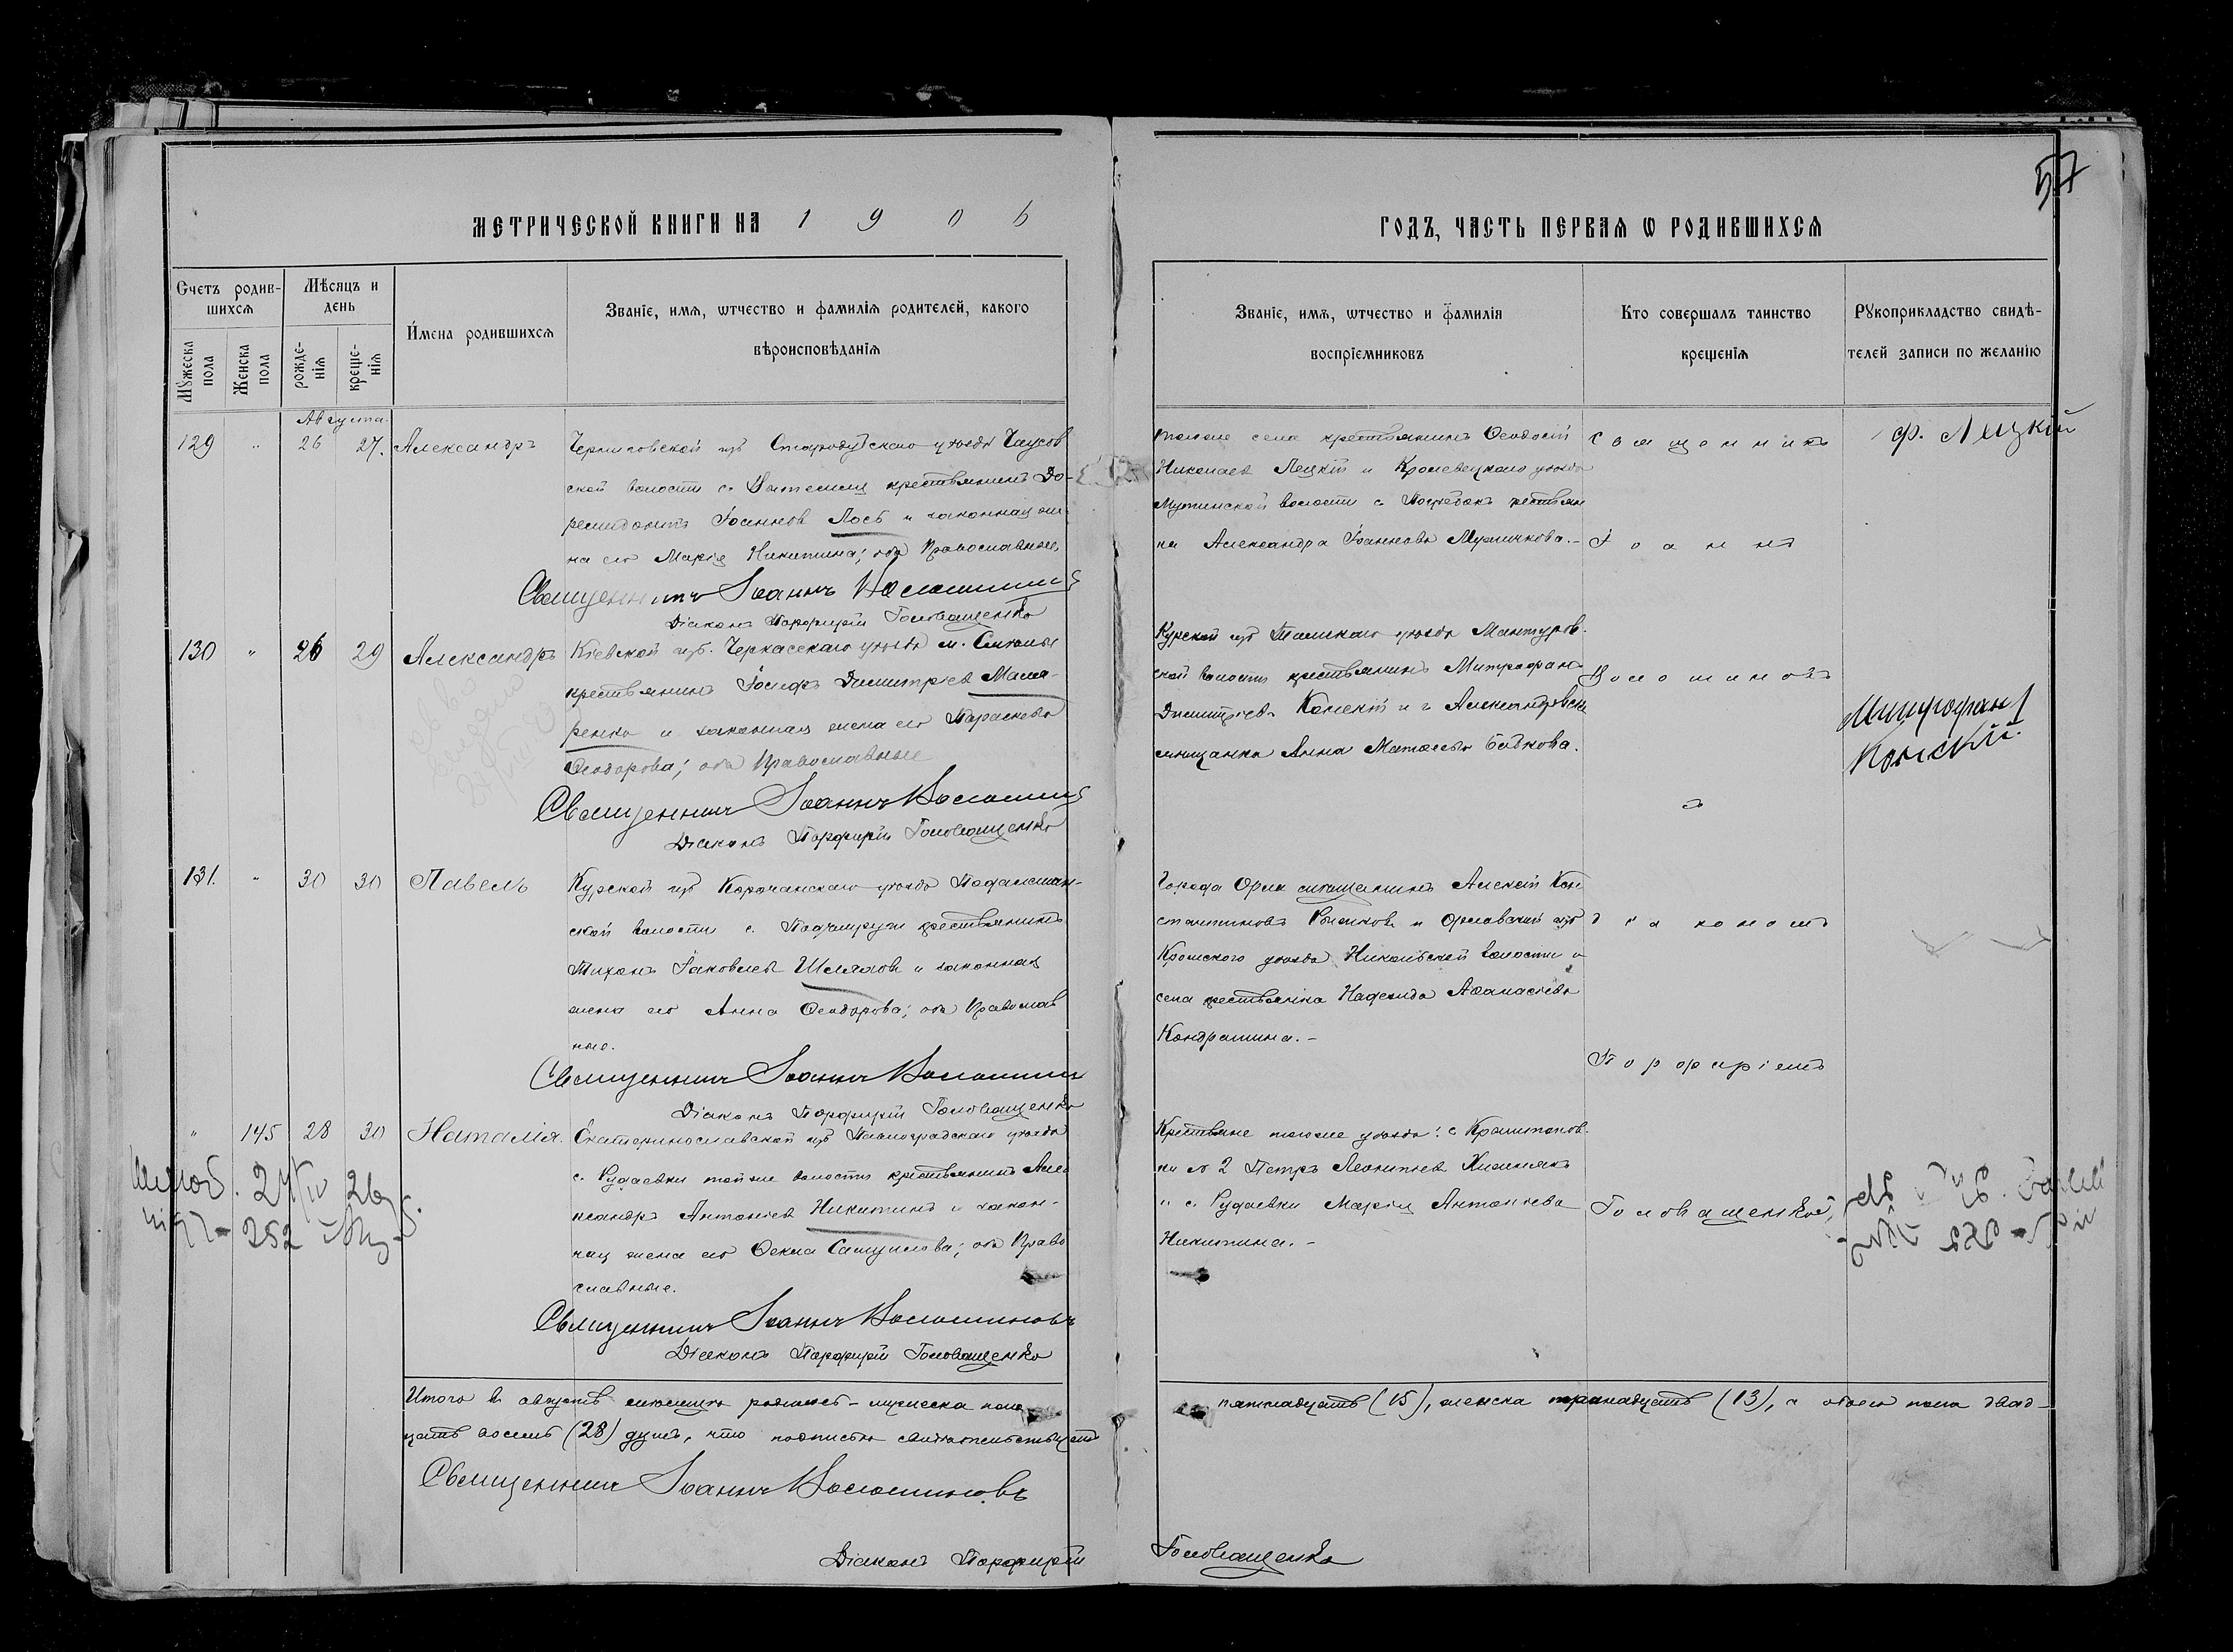 57
МЕТРИЧЕСКОЙ КНИГИ НА 1906
ГОДЪ, ЧАСТЬ ПЕРВАЯ Ѡ РОДИВШИХСЯ
Счетъ родив-
шихся
Мѣсяцъ и
день
Имена родившихся
Званіе, имя, ѡтчество и фамилія родителей, какого
вѣроисповѣданія
Мꙋжеска пола
Женска пола
рожде-
нія
креще-
нія
Званіе, имя, ѡтчество и фамилія
воспріемниковъ
Кто совершалъ таинство
крещенія
Рꙋкоприкладство свидѣ-
телей записи по желанію
Августа
129 " 26 27. Александръ
Черниговской губ Стародубскаго уѣзда Чаусов
ской волости с. крестьянинъ До-
римедонтъ Іоанновъ Лось и законная же-
на его Марія Никитина; оба Православные.
Священникъ Іоаннъ Волошинов
Діаконъ Порфирій Головащенко
тогоже села крестьянинъ Ѳеодосій
Николаевъ Лецкій и Кролевецкаго уѣзда
Мутинской волости с. крестьян
ка Александра Іоаннова
Священникъ
Іоаннъ
ф. Лецкій
130 " 26 29 Александръ
Кіевской губ. Черкасскаго уѣзда м. Смѣлы
крестьянинъ Іосифъ Димитріев Мака-
ренко и законная жена его Параскева
Ѳеодорова; оба Православные
Священникъ Іоаннъ Волошинов
Діаконъ Порфирій Головащенко
Курской губ Тимскаго уѣзда Мантуров-
ской волости крестьянинъ Митрофан
Димитріевъ Конскій и г. Александровска
мѣщанка Анна Матвѣева Бабкова.
Волошиновъ
съ
Митрофан
Конский.
131. " 30 30 Павелъ
Курской губ Корочанскаго уѣзда
ской волости с. крестьянинъ
Тихонъ Іаковлев Шляхов и законная
жена его Анна Ѳеодорова; оба Православ
ные.
Священникъ Іоаннъ Волошинов
Діаконъ Порфирій Головащенко
Города Орла мѣщанинъ Алексій Кон
стантиновъ Рыжков и Орловской губ
Кромского уѣзда Никольской волости и
села крестьянка Надежда Аѳанасіева
Кондрашина. -
діакономъ
Порфиріемъ
" 145 28 30 Наталія.
Екатеринославской губ Павлоградскаго уѣзда
с. Рудаевки той же волости крестьянинъ Алек
сандръ Антоніев Никитинъ и закон-
ная жена его Ѳекла Самуилова; оба Право
славные.
Священникъ Іоаннъ Волошиновъ
Діаконъ Порфирій Головащенко
Крестьяне тогоже уѣзда: с.
ки № 2 Петръ Леонтьев Хижнякъ
и с. Рудаевки Марія Антоніева
Никитина. -
Головащенко
24/IV 26
252
Итого въ августѣ мѣсяцѣ родилось - мужеска пола
пятнадцать (15), женска тринадцать (13), а обоего пола двад-
цать восемь (28) душъ, что подписью свидѣтельствуемъ
Священникъ Іоаннъ Волошиновъ
Діаконъ Порфирій Головащенко